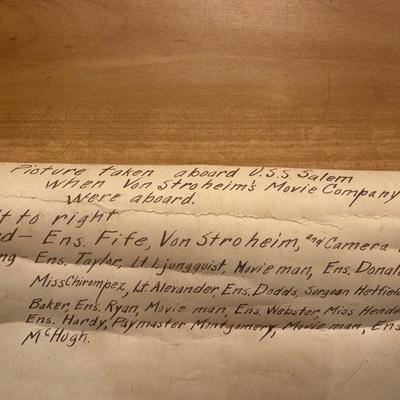 Picture taken aboard U.S.S. Salem
when Von Stroheim's Movie Company
were aboard.
to right
Ens. Fife, Von Stroheim, and Camera
Ens. Taylor, Lt Ljungquist, Movie man, Ens. Donal
Miss Chirompez, Lt. Alexander, Ens. Dodds, Surgeon Hetfiel
Baker, Ens. Ryan, Movie man, Ens. Webster, Miss Hende
Ens. Hardy, Paymaster Montgomery, Movie man, Ens
McHugh.